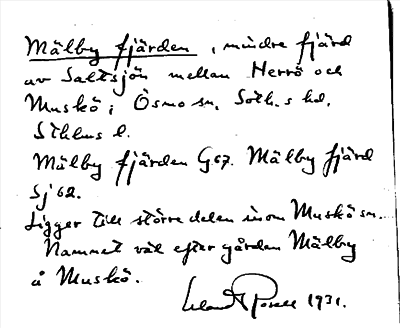 Mälby fjärden, mindre fjärd
av Saltsjön mellan Herrö och
Muskö i Ösmo sn, Soth.s hd,
Sthlms l.
Mälby fjärden G67. Mälby fjärd
Sj 62.
Ligger till större delen inom Muskö sn.
Namnet väl efter gården Mälby
å Muskö.
1931.